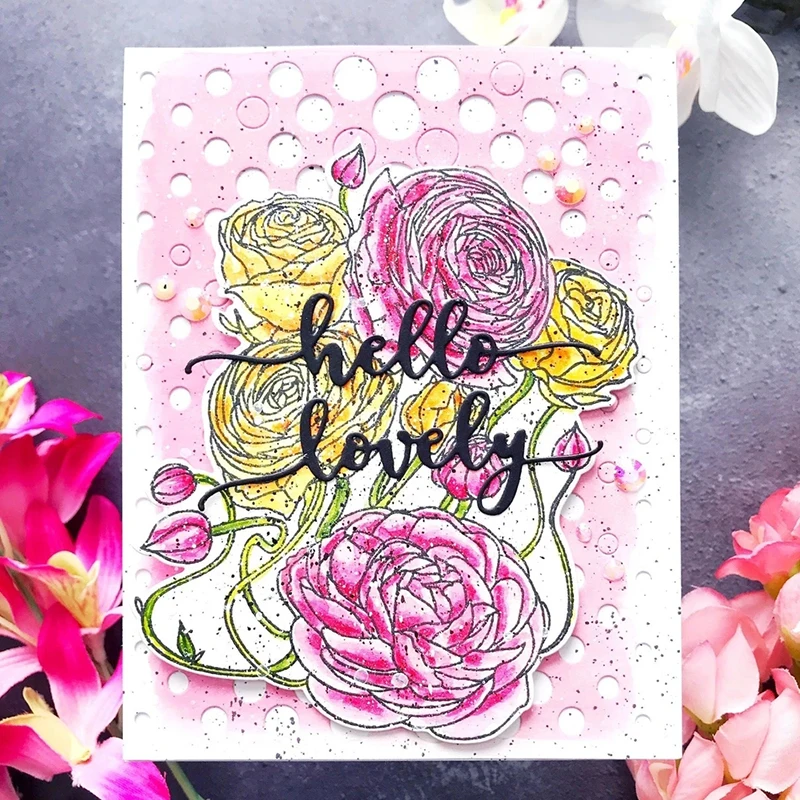 hello
lovely